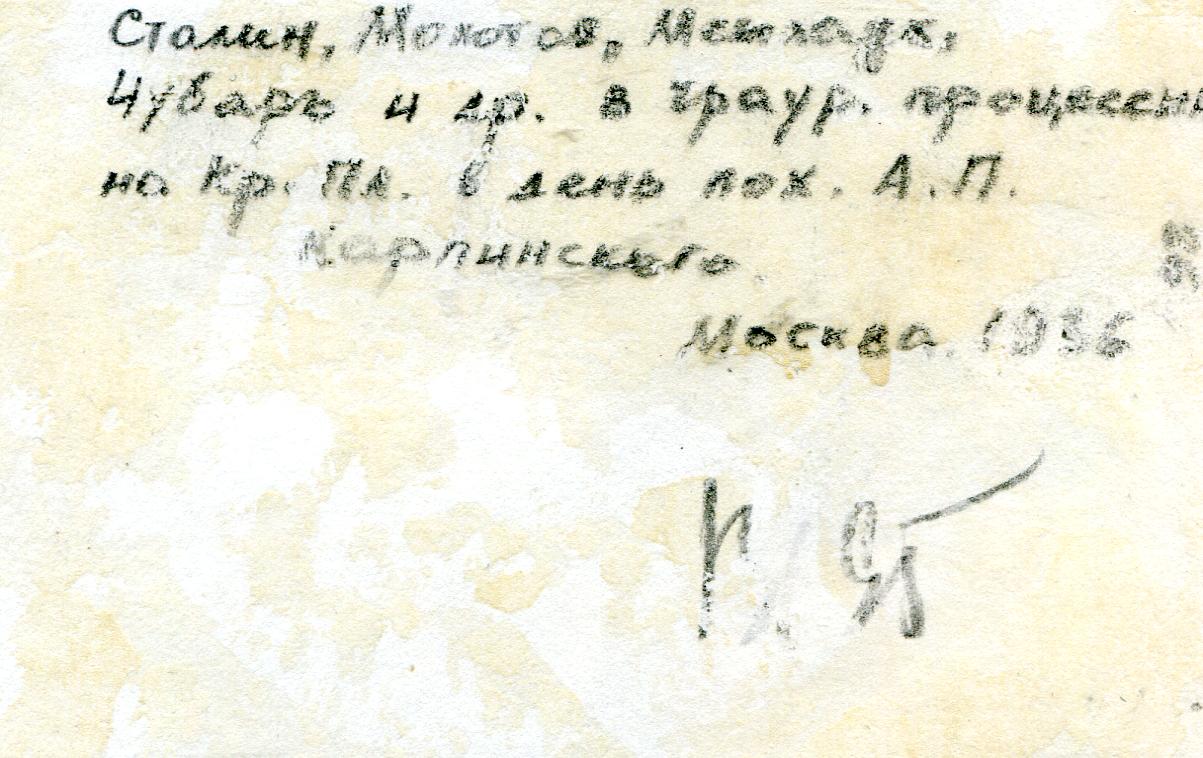 Сталин, Молотов, Межлаук,
Чубарь и др. в траур. процессии
на Кр. Пл. в день пох. А.П.
Карпинского.
Москва. 1936